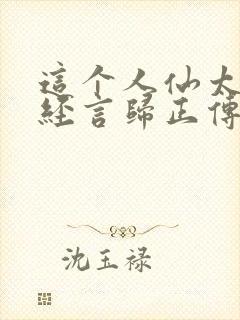 這个人仙太
經言歸正傳
沈玉禄